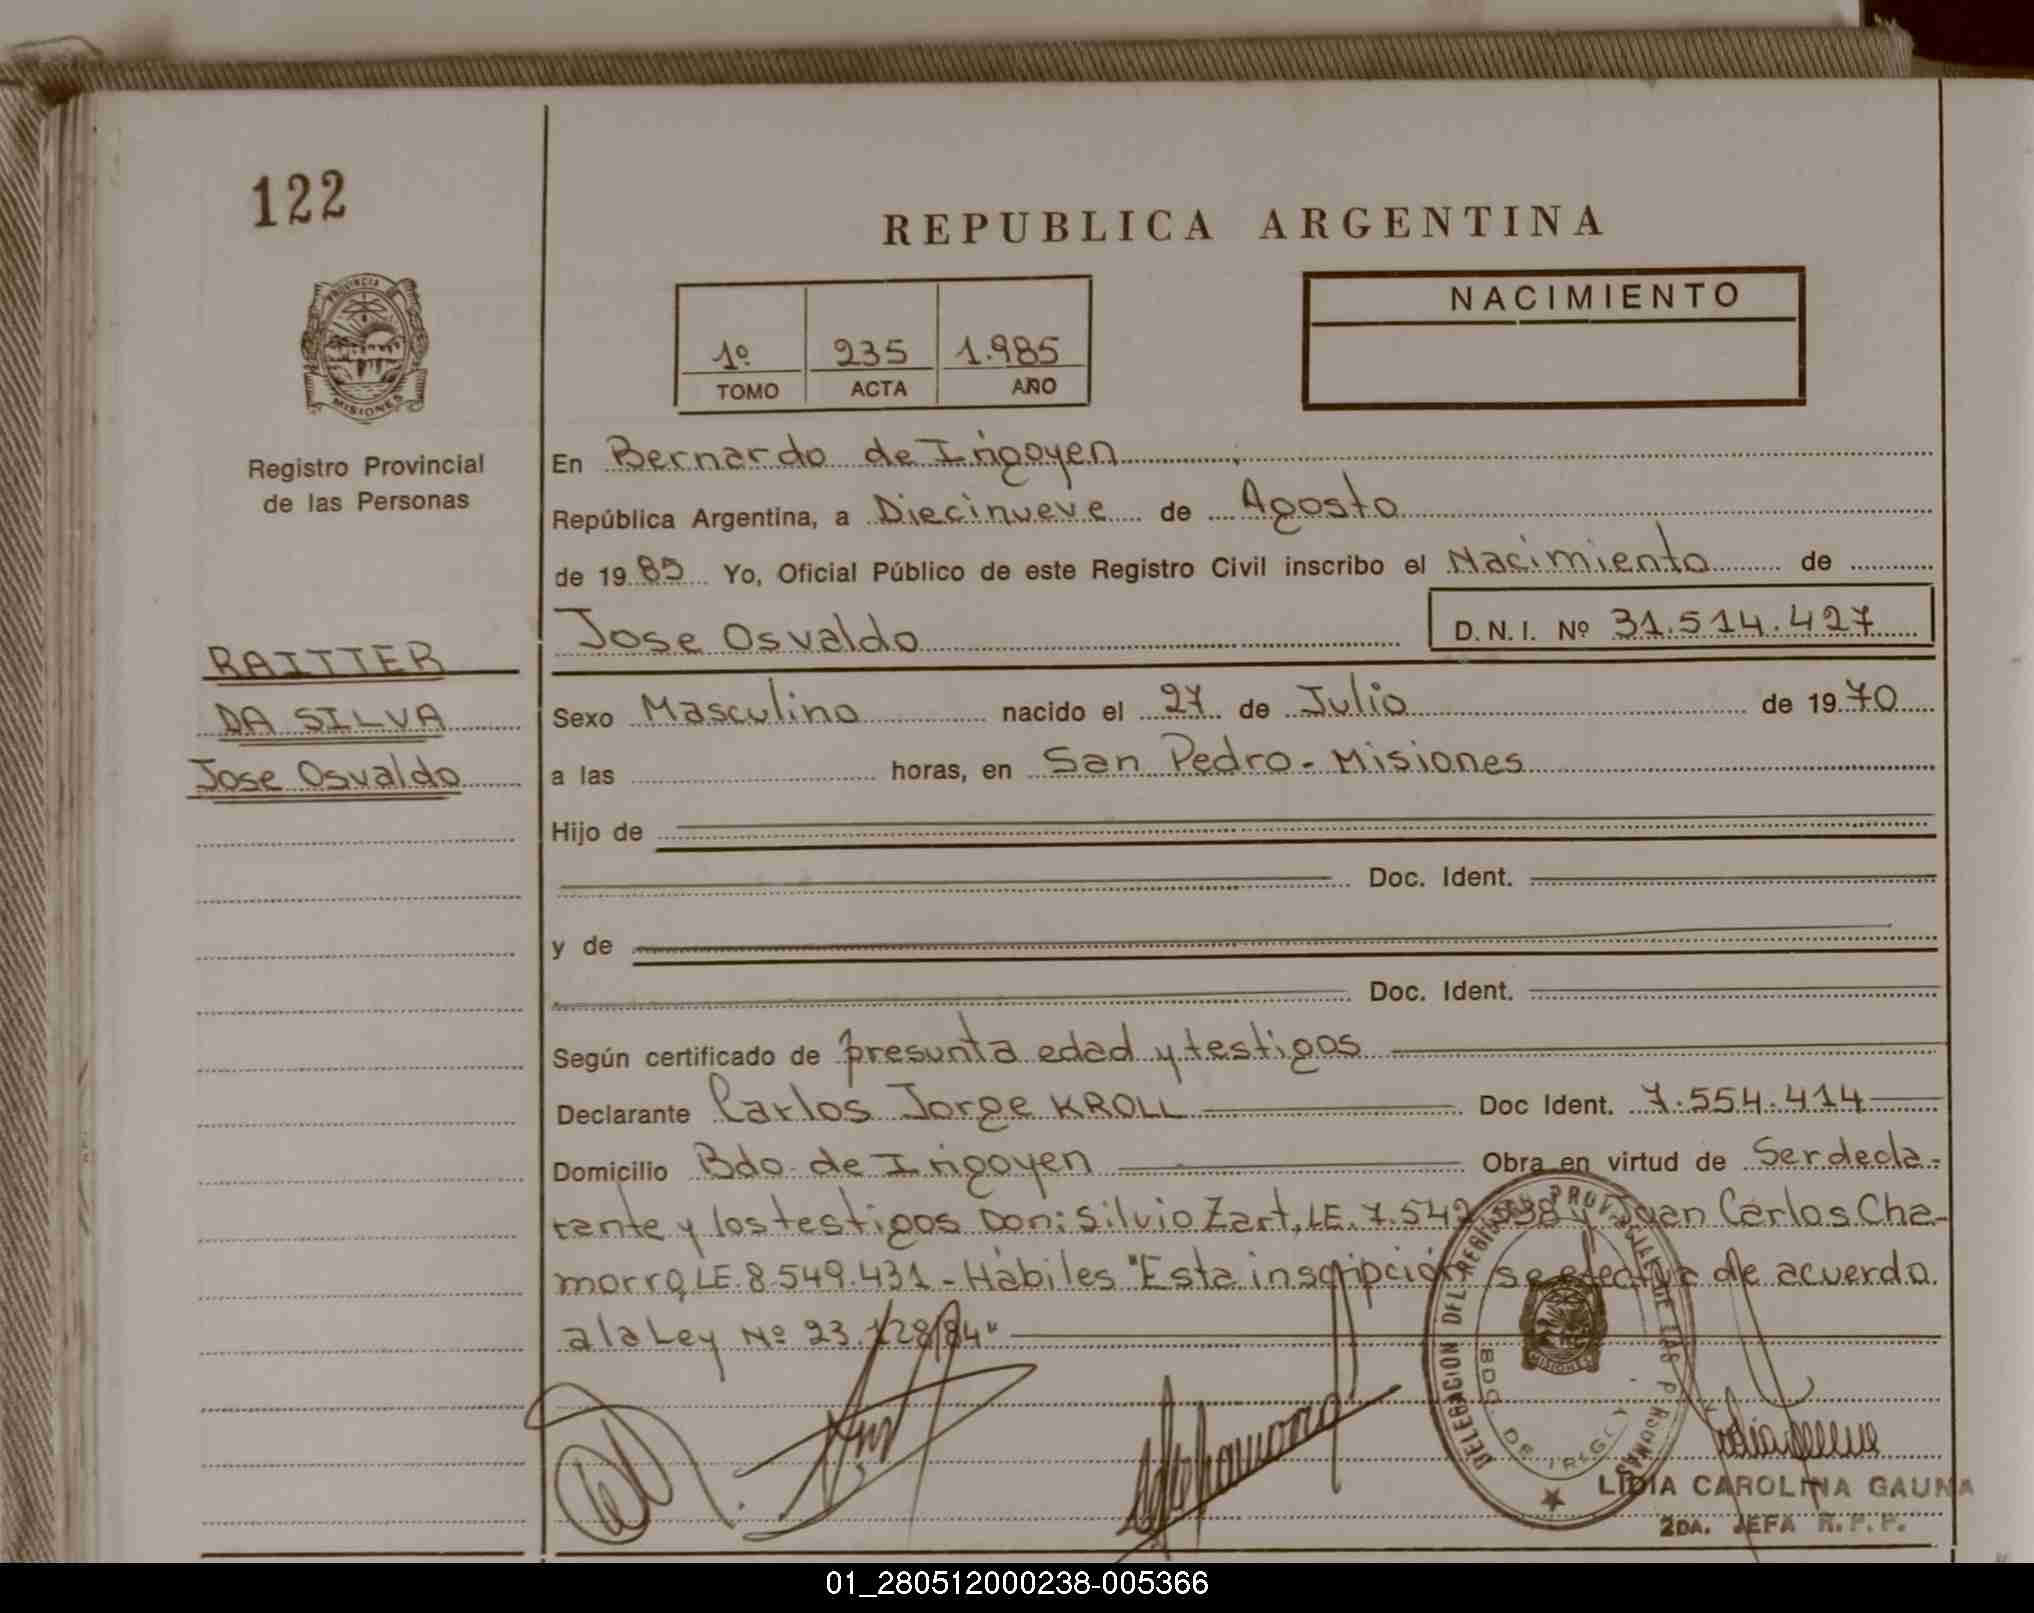 122
REPUBLICA ARGENTINA
PROVINCIA DE
MISIONES
Registro Provincial
de las Personas
1º 235 1.985
TOMO ACTA AÑO
NACIMIENTO
En Bernardo de Irigoyen
República Argentina, a Diecinueve de Agosto
de 1985 Yo, Oficial Público de este Registro Civil inscribo el Nacimiento de
Jose Osvaldo D.N.I. Nº 31.514.427
RAITTER
DA SILVA
Jose Osvaldo
Sexo Masculino nacido el 27 de Julio de 1970
a las horas, en San Pedro - Misiones
Hijo de
Doc. Ident.
y de
Doc. Ident.
Según certificado de presunta edad y testigos
Declarante Carlos Jorge KROLL Doc Ident. 7.554.414
Domicilio Bdo. de Irigoyen Obra en virtud de Ser decla-
rante y los testigos Don: Silvio Zart, LE. 7.542. y Juan Carlos Cha-
morro, LE. 8.549.431 - Hábiles "Esta inscripción se efectua de acuerdo
a la Ley Nº 23.128/84"
DELEGACION DEL REGISTRO PROVINCIAL DE LAS PERSONAS
BDO. DE IRIGOYEN
MISIONES
LIDIA CAROLINA GAUNA
2DA. JEFA R.P.P.
01_280512000238-005366